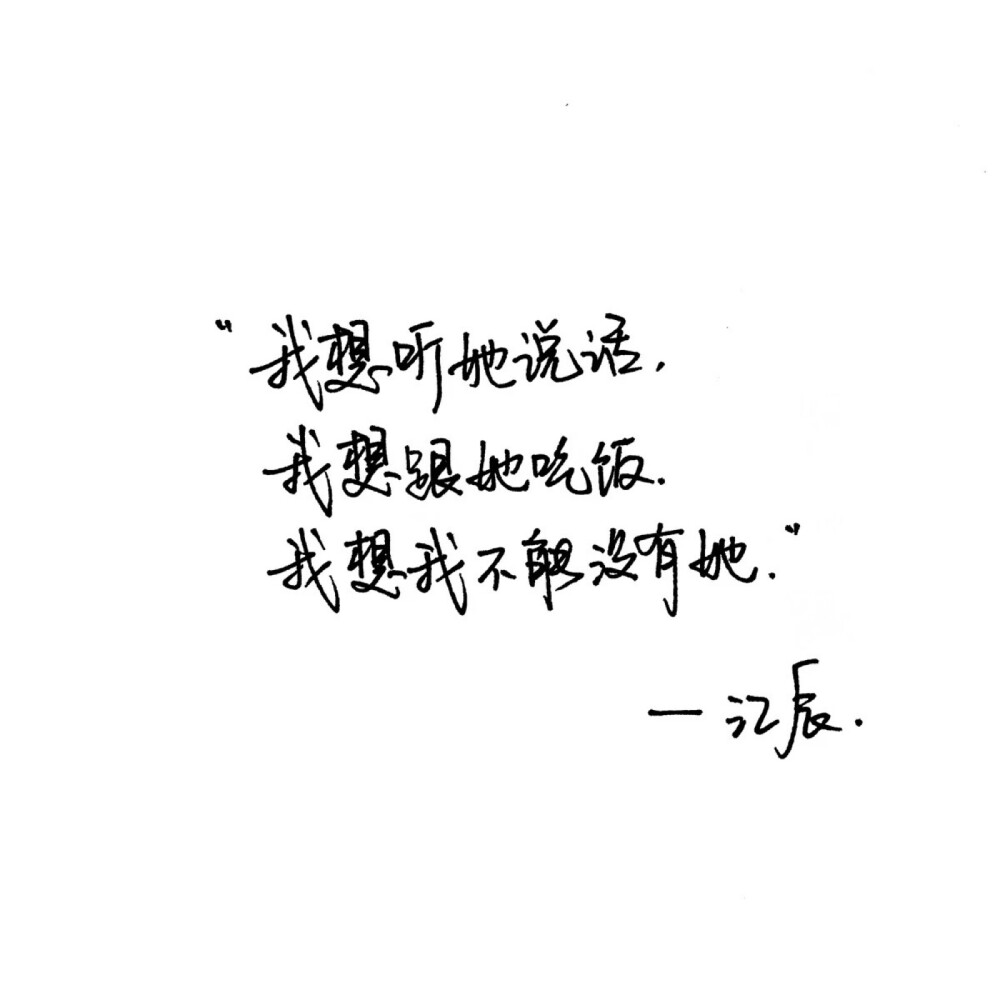 “我想听她说话,
我想跟她吃饭.
我想我不能没有她.”
— 江辰.